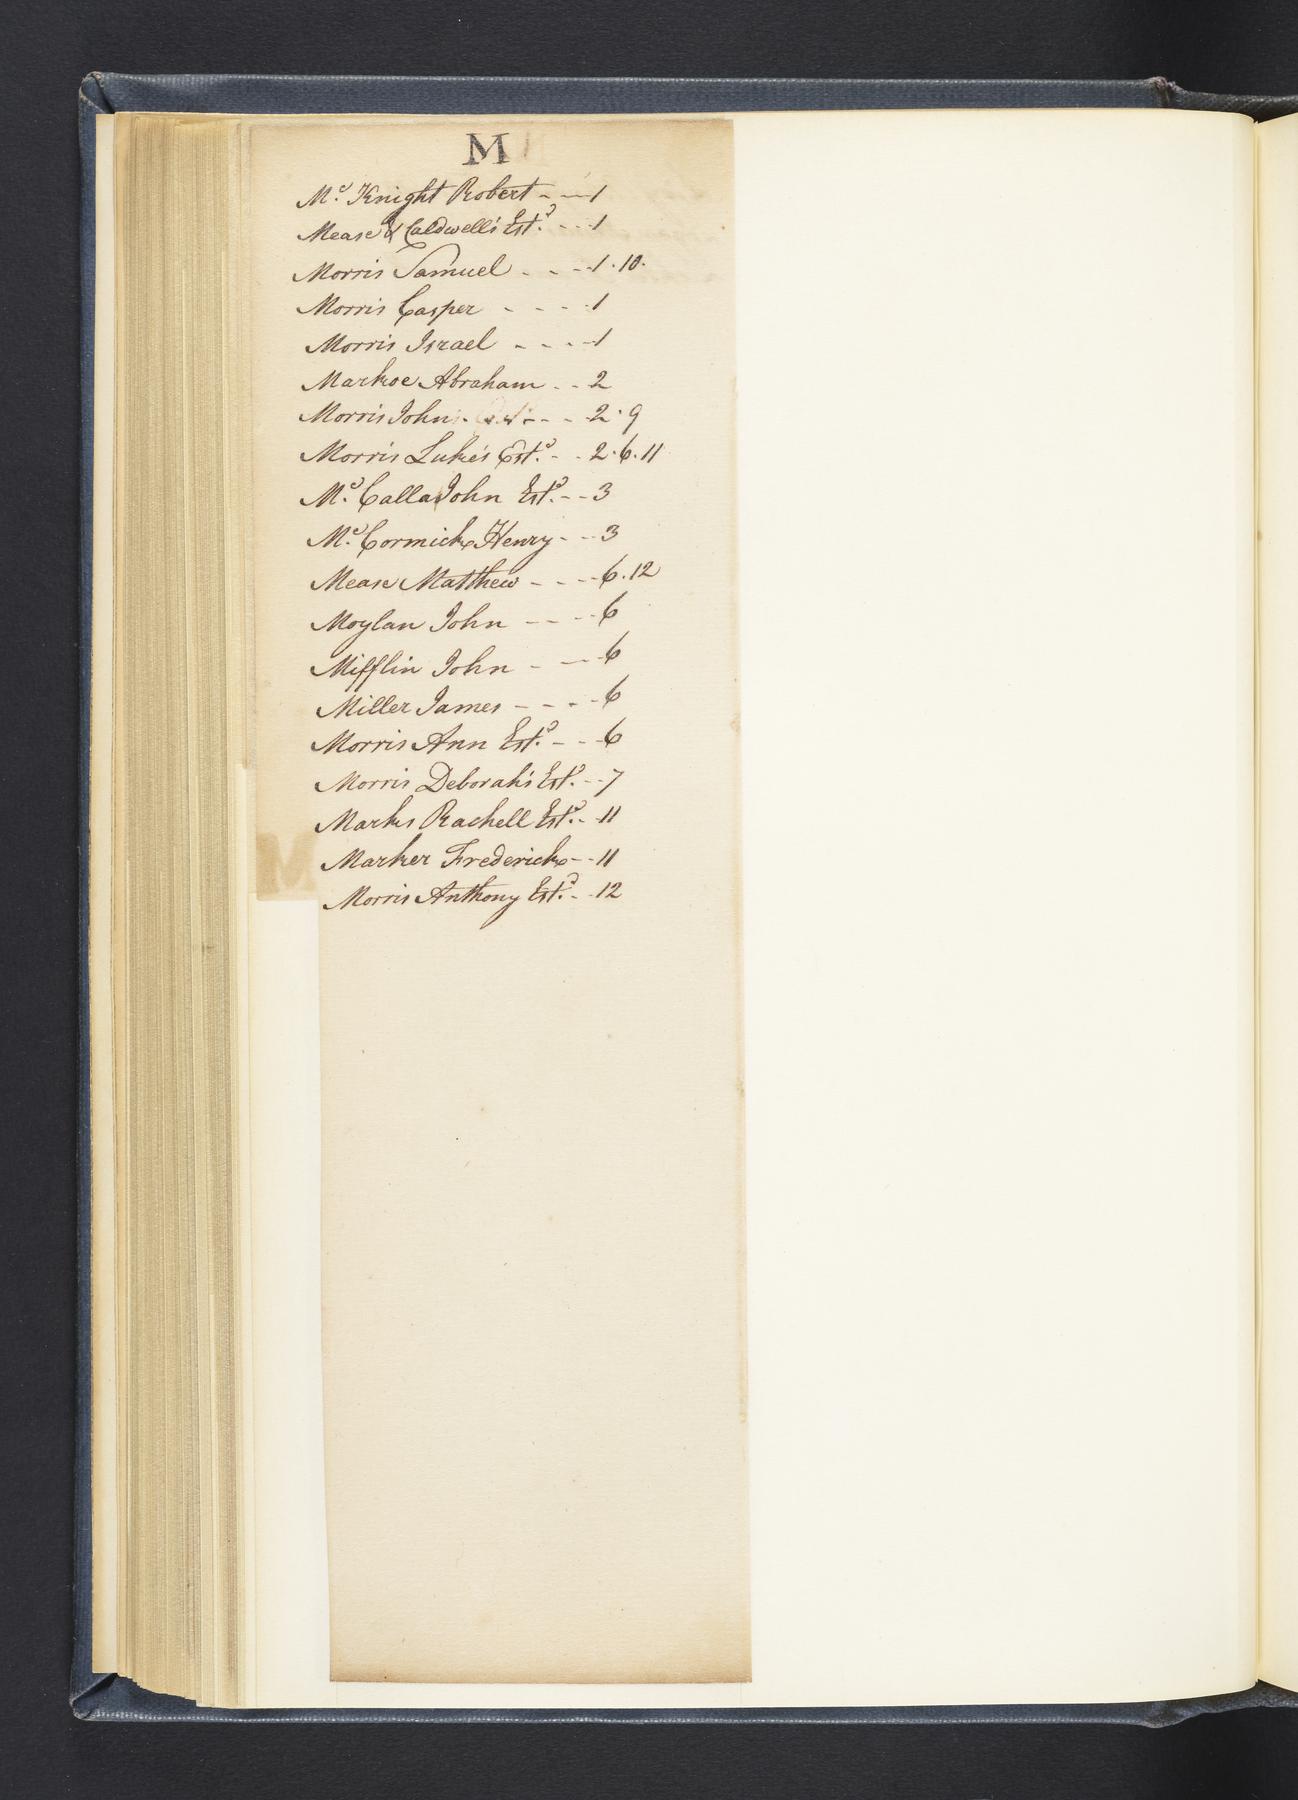 M
Mc. Knight Robert - - - 1
Mease & Caldwell's Estd. - - - 1
Morris Samuel - - - 1.10.
Morris Casper - - - - 1
Morris Israel - - - - 1
Markoe Abraham - - 2
Morris John - - - 2.9
Morris Luke's Estd. - - 2.6.11
Mc. Calla John Estd. - - 3
Mc. Cormick Henry - - - 3
Mease Matthew - - - - 6.12
Moylan John - - - - 6
Mifflin John - - - 6
Miller James - - - - 6
Morris Ann Estd. - - - 6
Morris Deborah's Estd. - - 7
Marks Rachell Estd. - - 11
Marker Frederick - - 11
Morris Anthony Estd. - - 12
M